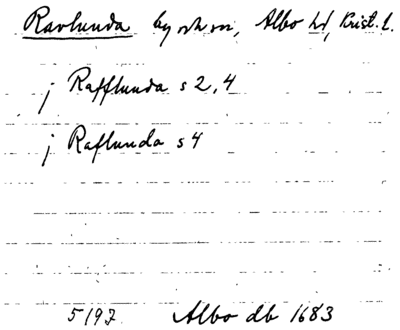 Ravlunda by o sn, Albo hd, Krist. l.
j Rafflunda s 2, 4
j Raflunda s 4
5197 Albo db 1683